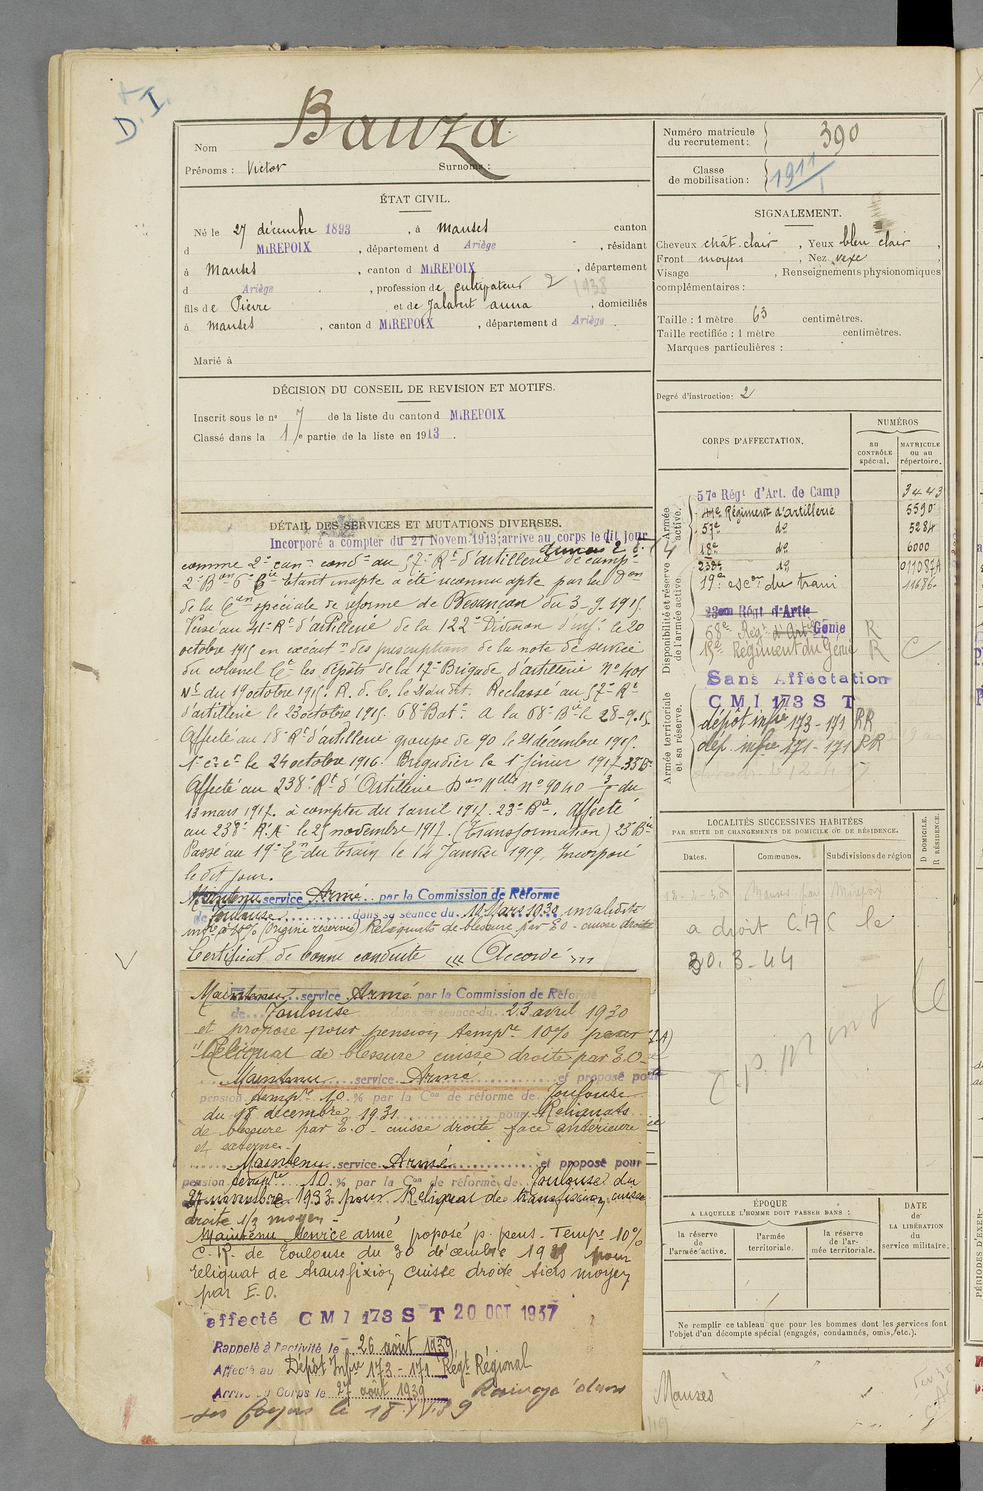 D.I.
Bauza
Nom
Prénoms : Victor Surnoms :
ÉTAT CIVIL.
Né le 27 décembre 1893, à Manses canton
d MIREPOIX, département d Ariège, résidant
à Manses, canton d MIREPOIX, département
d Ariège, profession de cultivateur 2 1938
fils de Pierre et de Jalabert anna, domiciliés
à Manses, canton d MIREPOIX, département d Ariège.
Marié à
DÉCISION DU CONSEIL DE REVISION ET MOTIFS.
Inscrit sous le no 7 de la liste du canton d MIREPOIX
Classé dans la 1re partie de la liste en 1913.
DÉTAIL DES SERVICES ET MUTATIONS DIVERSES.
Incorporé a compter du 27 Novem 1913; arrive au corps le dit jour
comme 2e can. cond. au 57e Rt d'artillerie de camp.
2e Bon 6e Bie Etant inapte a été reconnu apte par la
de la Con spéciale de réforme de Besançon du 3-9-1915.
Versé au 41e Rt d'artillerie de la 122e Division d'inf. le 20
octobre 1915 en exécutn des prescriptions de la note de service
du colonel Ct les dépôts de la 17e Brigade d'artillerie no 401
du 19 octobre 1915. R. d. C. le dit. Reclassé au 57e Rt
d'artillerie le 23 octobre 1915. 68e Batt. A la 68e Bie le 28-9-15
Affecté au 18e Rt d'artillerie groupe de 90 le 21 décembre 1915.
1er cr ct le 24 octobre 1916. Brigadier le 1er février 1917.
Affecté au 238e Rt d'Artillerie Don Mlle no 9040 3/5 du
13 mars 1917. à compter du 1 avril 1917. 23e Bie. Affecté
au 238e R.A. le 25 novembre 1917. (Transformation) 23e Bie
Passé au 19e En du train le 14 Janvier 1919. Incorporé
le dit jour.
Maintenu service Armé par la Commission de Réforme
de Toulouse dans sa séance du 10 Mars 1930 invalidité
(origine réservée) Reliquats de blessure par E.O. cuisse droite
Certificat de bonne conduite "Accordé"
Maintenu service Armé par la Commission de Réforme
de Toulouse dans sa séance du 23 avril 1930
et proposé pour pension tempre 10% pour
"Reliquat de blessure cuisse droite par E.O.
Maintenu service Armé et proposé pour
pension tempre 10 % par la Con de réforme de Toulouse
du 18 décembre 1931 pour Reliquats
de blessure par E.O. cuisse droite face antérieure
et externe.
Maintenu service Armé et proposé pour
pension tempre 10 % par la Con de réforme de Toulouse du
27 novembre 1933 pour Reliquat de transfixion cuisse
droite 1/3 moyen
Maintenu Service armé proposé p. pens. Tempre 10%
C.R. de Toulouse du 30 décembre pour
reliquat de transfixion cuisse droite tiers moyen
par E.O.
affecté CMI 173 S T 20 OCT 1937
Rappelé à l'activité le 26 août 1939
Affecté au Dépôt Infie 173-171 Régt Régional
Arrivé au Corps le 27 août 1939 Renvoyé dans
ses foyers le
Numéro matricule du recrutement : 390
Classe de mobilisation : 1911
SIGNALEMENT.
Cheveux chât. clair, Yeux bleu clair,
Front moyen, Nez vexe,
Visage, Renseignements physionomiques
complémentaires :
Taille : 1 mètre 63 centimètres.
Taille rectifiée : 1 mètre centimètres.
Marques particulières :
Degré d'instruction : 2
CORPS D'AFFECTATION.
NUMÉROS
au CONTRÔLE spécial.
MATRICULE ou au répertoire.
Armée active.
57e Régt d'Art. de Camp 3443
41e Régiment d'artillerie 5590
57e do 5284
18e do 6000
Disponibilité et réserve de l'armée active.
238e do 011087A
19e escon du train 11686
23em Régt d'Artie
68e Régt d'Artie Génie R
19e Régiment du Génie R C
Sans Affectation
CMI 173 S T
Armée territoriale et sa réserve.
dépôt infie 173-171 RR
dép. infie 171-171 RR
LOCALITÉS SUCCESSIVES HABITÉES
PAR SUITE DE CHANGEMENTS DE DOMICILE OU DE RÉSIDENCE.
D DOMICILE.
R RÉSIDENCE.
Dates.
Communes.
Subdivisions de région
Manses par Mirepoix
a droit C.A C le
30.3-44
ÉPOQUE
A LAQUELLE L'HOMME DOIT PASSER DANS :
la réserve de l'armée active.
l'armée territoriale.
la réserve de l'armée territoriale.
DATE de LA LIBÉRATION du service militaire.
Ne remplir ce tableau que pour les hommes dont les services font
l'objet d'un décompte spécial (engagés, condamnés, omis, etc.).
Manses
PÉRIODES D'EXER-